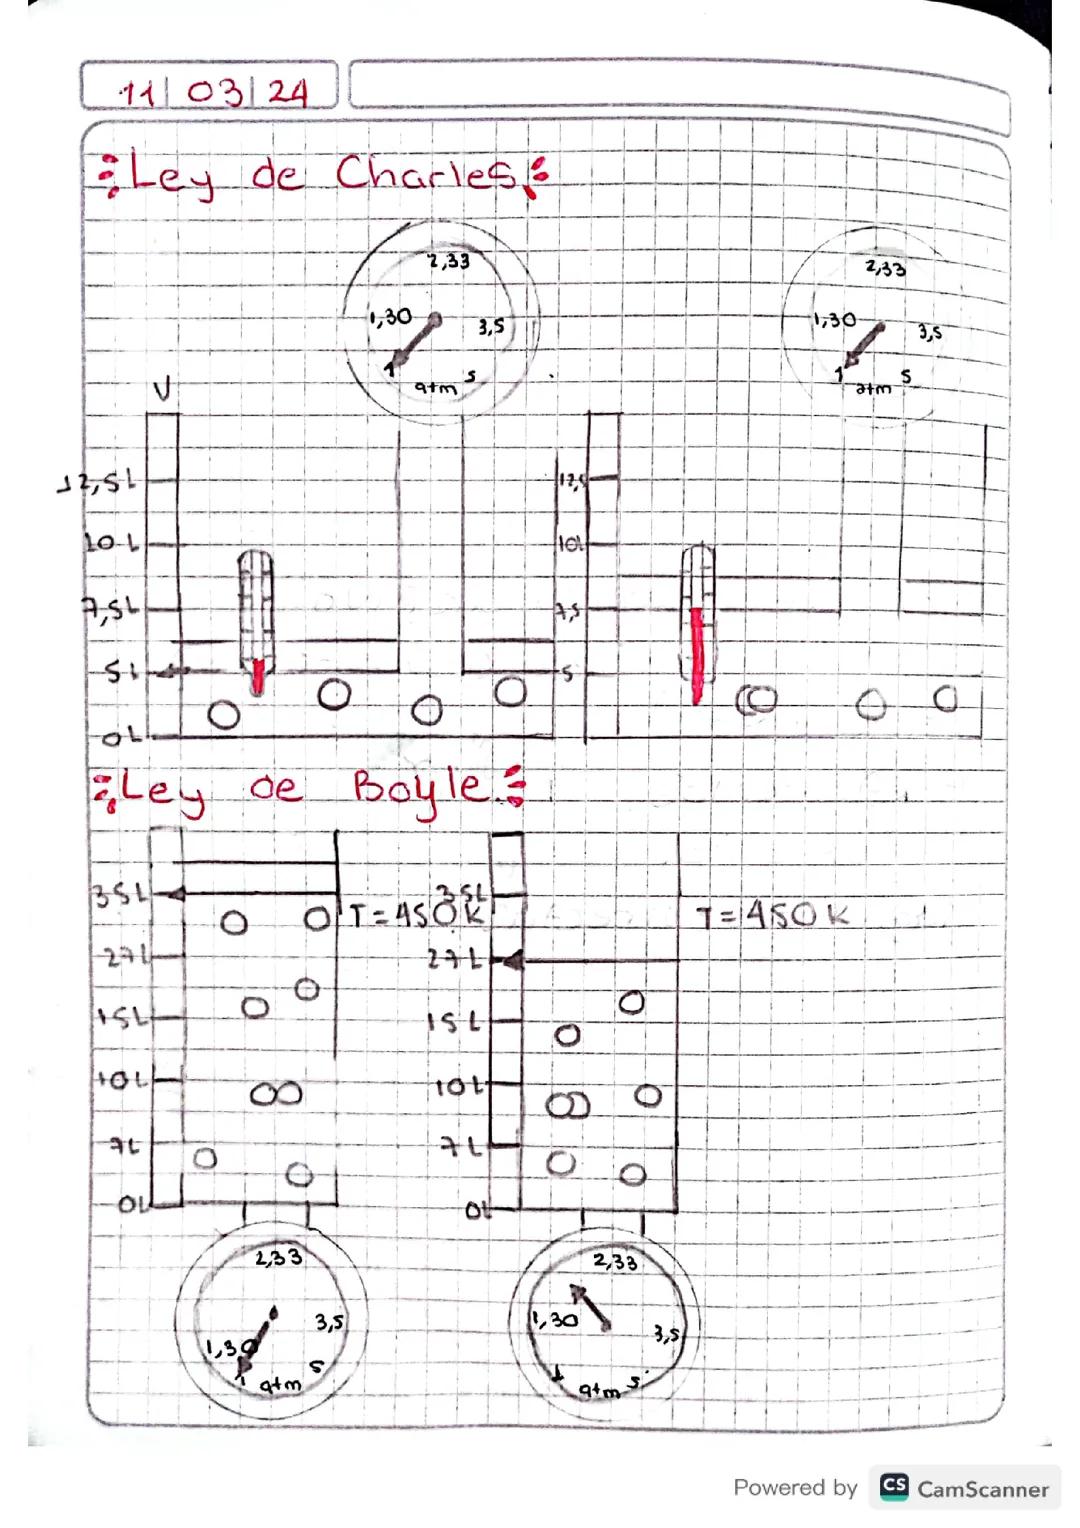 11/03/24
Ley de Charles
2,33
1,30
3,5
1
atm
5
2,33
1,30
3,5
1
atm
5
V
12,5L
10L
7,5L
5L
0L
12,5
10L
7,5
5
Ley de Boyle
35L
27L
15L
10L
7L
0L
T=450K
35L
27L
15L
10L
7L
0L
T=450K
2,33
1,30
3,5
1
atm
5
2,33
1,30
3,5
1
atm
5
Powered by CS CamScanner